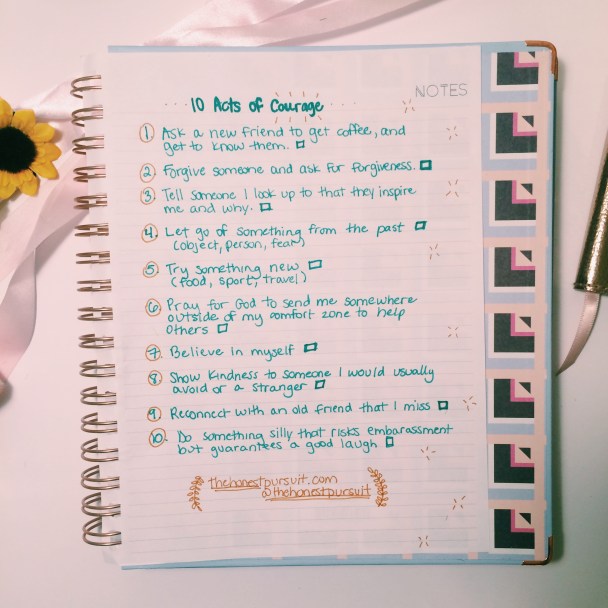 NOTES
10 Acts of Courage
1. Ask a new friend to get coffee, and
get to know them.
2. Forgive someone and ask for forgiveness.
3. Tell someone I look up to that they inspire
me and why.
4. Let go of something from the past
(object, person, fear)
5. Try something new
(food, sport, travel)
6. Pray for God to send me somewhere
outside of my comfort zone to help
others
7. Believe in myself
8. Show kindness to someone I would usually
avoid or a stranger
9. Reconnect with an old friend that I miss
10. Do something silly that risks embarassment
but guarantees a good laugh
thehonestpursuit.com
@thehonestpursuit